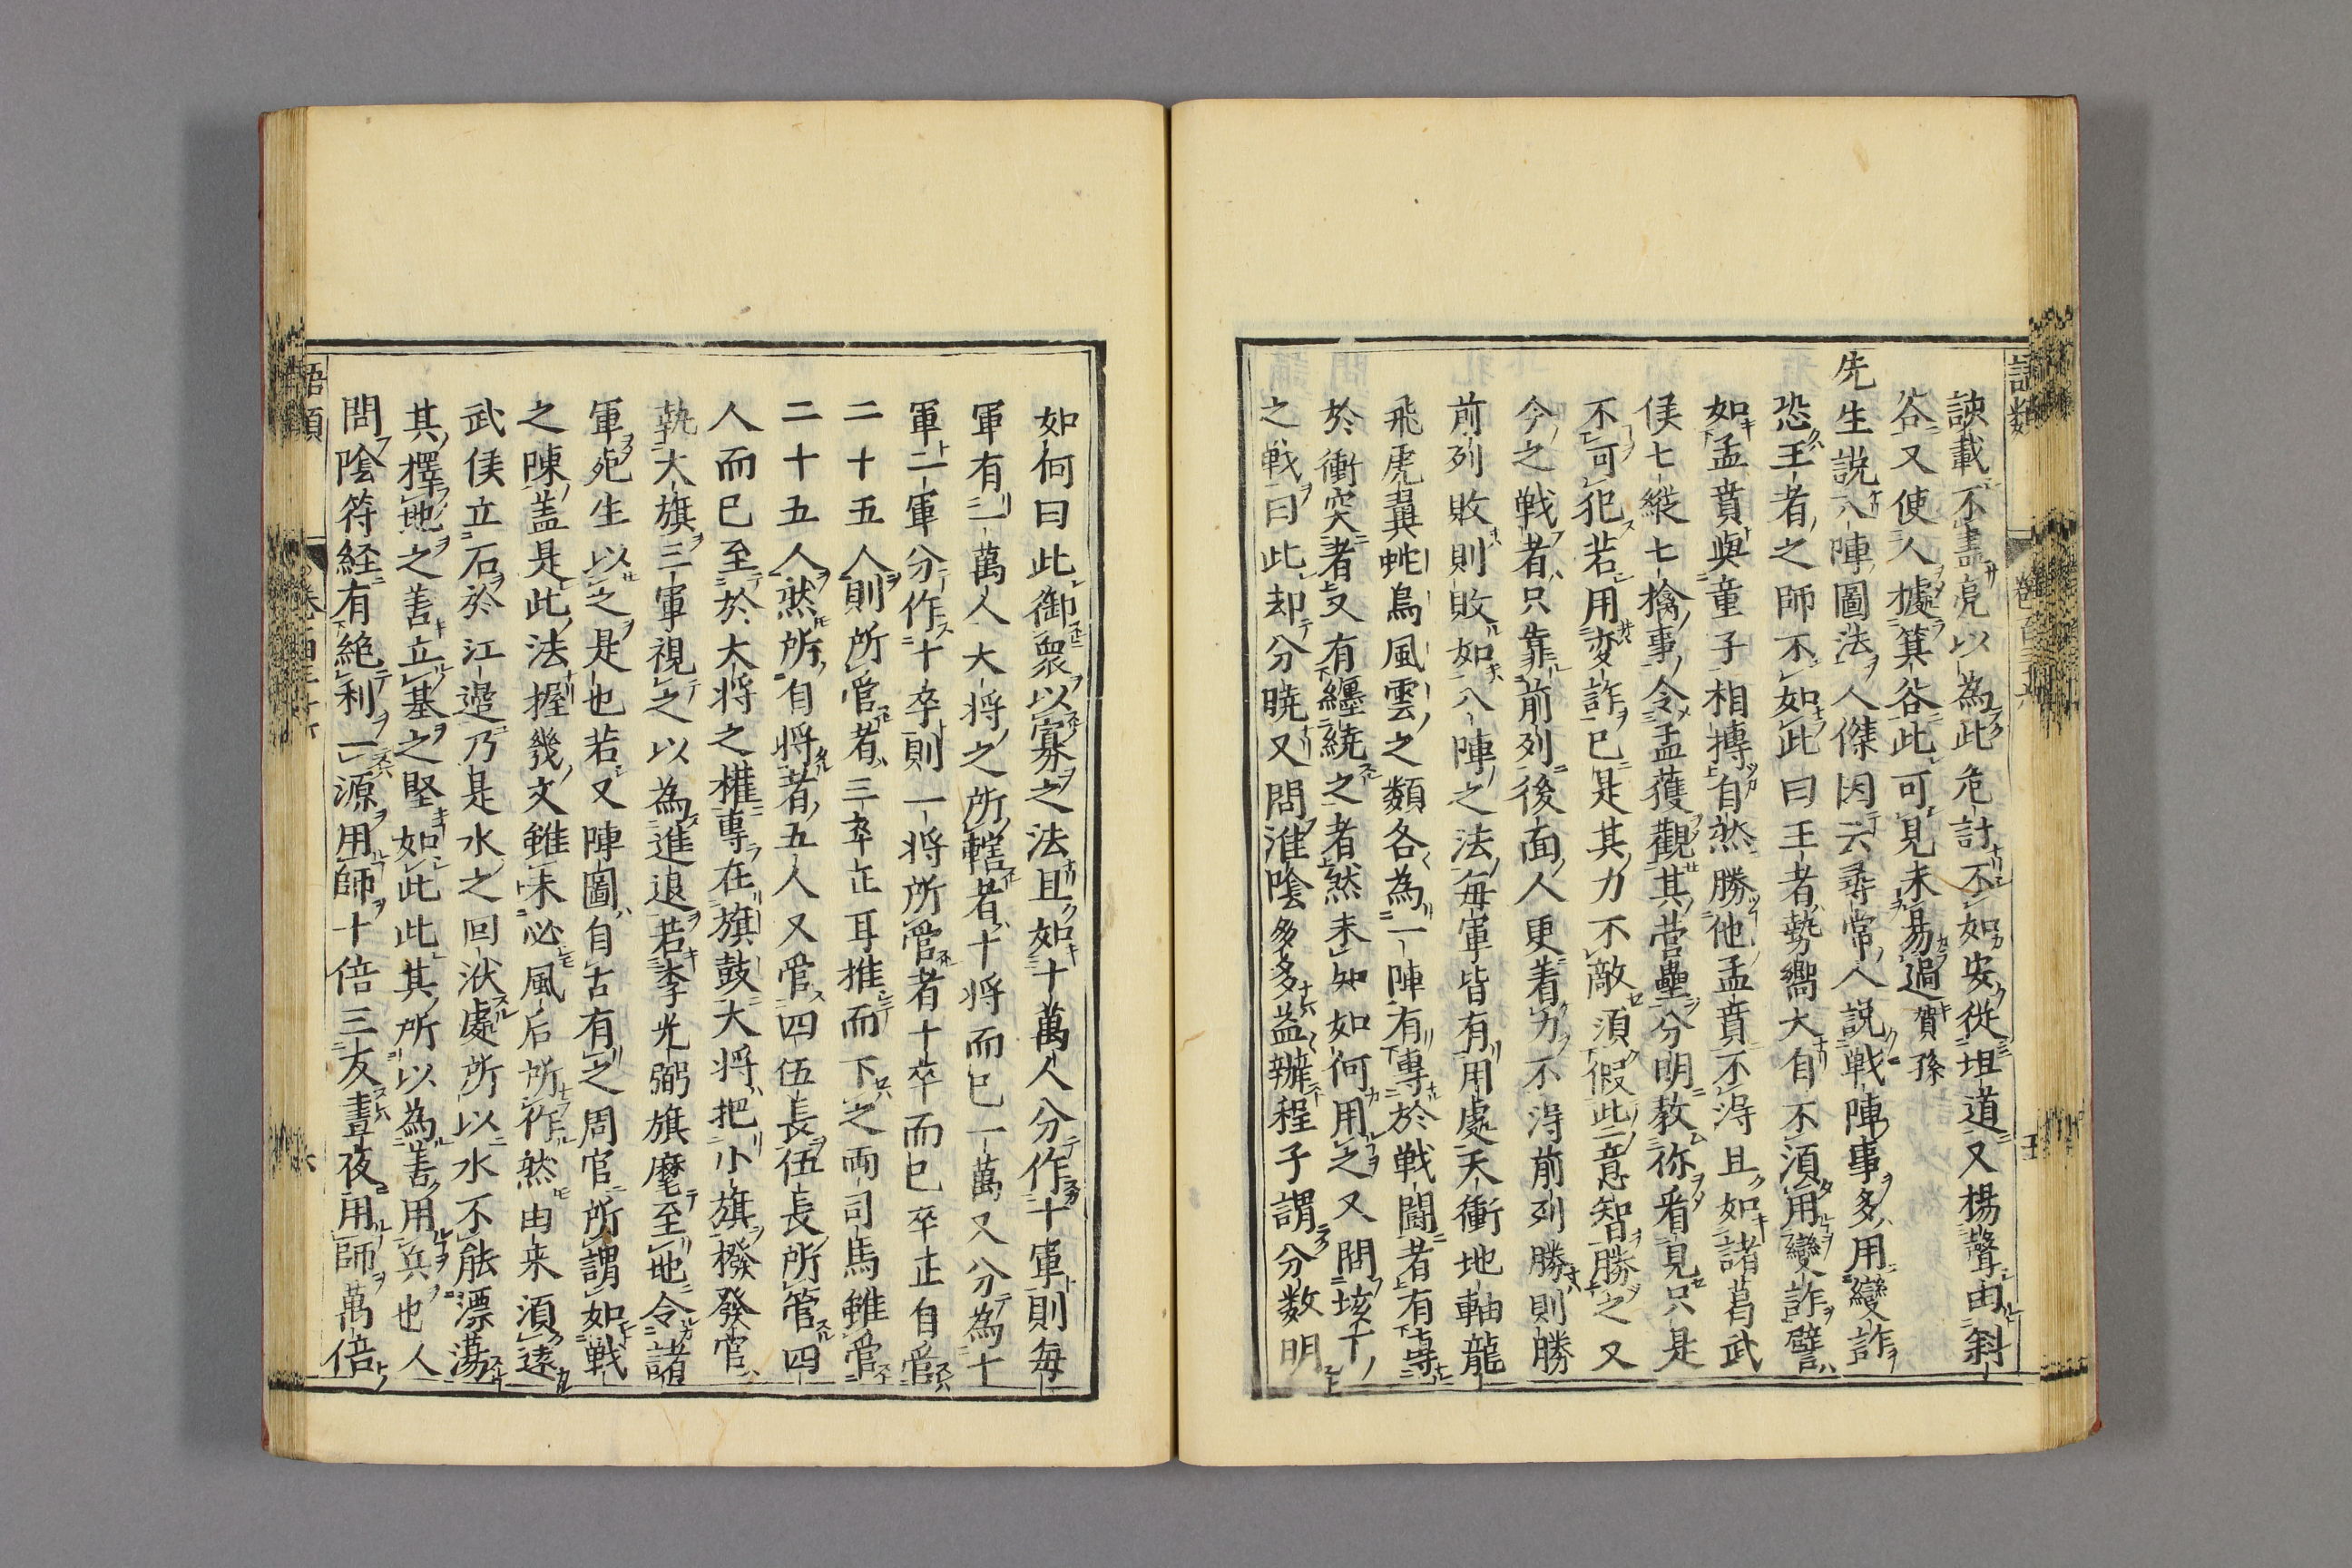 語類
諛載不盡亮以為此危計不如安從坦道又楊聲由斜
谷又使人據箕谷此可見未易過賀孫
先生説八陣圖法人傑因云尋常人説戦陣事多用變詐
恐王者之師不如此曰王者勢嚮大自不湏用變詐譬
如孟賁與童子相摶自然勝他孟賁不淂且如諸葛武
侯七縱七擒事令孟獲觀其営壘分明教祢看見只是
不可犯若用変詐已是其力不敵湏假此意智勝之又
今之戦者只靠前列後面人更着力不淂前列勝則勝
前列敗則敗如八陣之法毎軍皆有用處天衝地軸龍
飛虎翼蛇鳥風雲之類各為一陣有專於戦鬪者有專
於衝突者又有纒繞之者然未知如何用之又問垓下
之戦曰此却分暁又問淮隂多多益辦程子謂分数明
如何曰此御衆以寡之法且如十萬人分作十軍則毎
軍有一萬人大将之所轄者十将而已一萬又分為十
軍一軍分作十卒則一将所管者十卒而已卒正自管
二十五人則所管者三卒正耳推而下之両司馬雖管
二十五人然所自将者五人又管四伍長伍長所管四
人而已至於大将之權專在旗鼓大将把小旗撥發官
執大旗三軍視之以為進退若李光弼旗麾至地令諸
軍死生以之是也若又陣圖自古有之周官所謂如戦
之陳盖是此法握幾文雖未必風后所作然由来湏遠
武侯立石於江邉乃是水之回洑處所以水不能漂蕩
其擇地之善立基之堅如此此其所以為善用兵也人
問隂符経有絶利一源用師十倍三友晝夜用師萬倍
語類